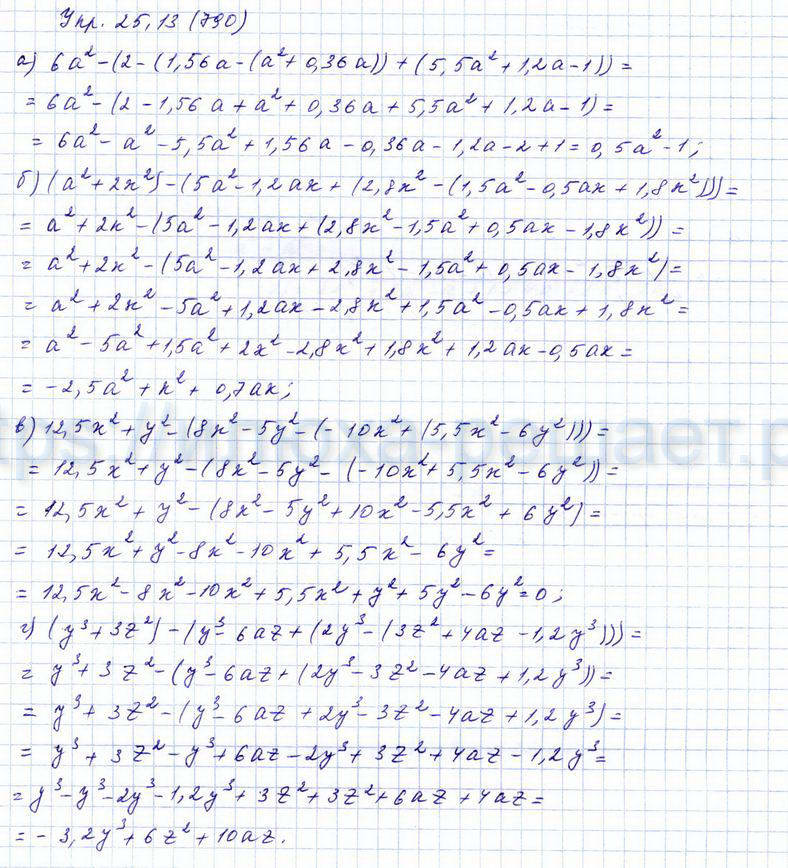 Упр. 25,13 (790)
а) 6a² - (2 - (1,56a - (a² + 0,36a)) + (5,5a² + 1,2a - 1)) =
= 6a² - (2 - 1,56a + a² + 0,36a + 5,5a² + 1,2a - 1) =
= 6a² - a² - 5,5a² + 1,56a - 0,36a - 1,2a - 2 + 1 = 0,5a² - 1;
б) (a² + 2x²) - (5a² - 1,2ax + (2,8x² - (1,5a² - 0,5ax + 1,8x²))) =
= a² + 2x² - (5a² - 1,2ax + (2,8x² - 1,5a² + 0,5ax - 1,8x²)) =
= a² + 2x² - (5a² - 1,2ax + 2,8x² - 1,5a² + 0,5ax - 1,8x²) =
= a² + 2x² - 5a² + 1,2ax - 2,8x² + 1,5a² - 0,5ax + 1,8x² =
= a² - 5a² + 1,5a² + 2x² - 2,8x² + 1,8x² + 1,2ax - 0,5ax =
= -2,5a² + x² + 0,7ax;
в) 12,5x² + y² - (8x² - 5y² - (-10x² + (5,5x² - 6y²))) =
= 12,5x² + y² - (8x² - 5y² - (-10x² + 5,5x² - 6y²)) =
= 12,5x² + y² - (8x² - 5y² + 10x² - 5,5x² + 6y²) =
= 12,5x² + y² - 8x² - 10x² + 5,5x² - 6y² =
= 12,5x² - 8x² - 10x² + 5,5x² + y² + 5y² - 6y² = 0;
г) (y³ + 3z²) - (y³ - 6az + (2y³ - (3z² + 4az - 1,2y³))) =
= y³ + 3z² - (y³ - 6az + (2y³ - 3z² - 4az + 1,2y³)) =
= y³ + 3z² - (y³ - 6az + 2y³ - 3z² - 4az + 1,2y³) =
= y³ + 3z² - y³ + 6az - 2y³ + 3z² + 4az - 1,2y³ =
= y³ - y³ - 2y³ - 1,2y³ + 3z² + 3z² + 6az + 4az =
= - 3,2y³ + 6z² + 10az.